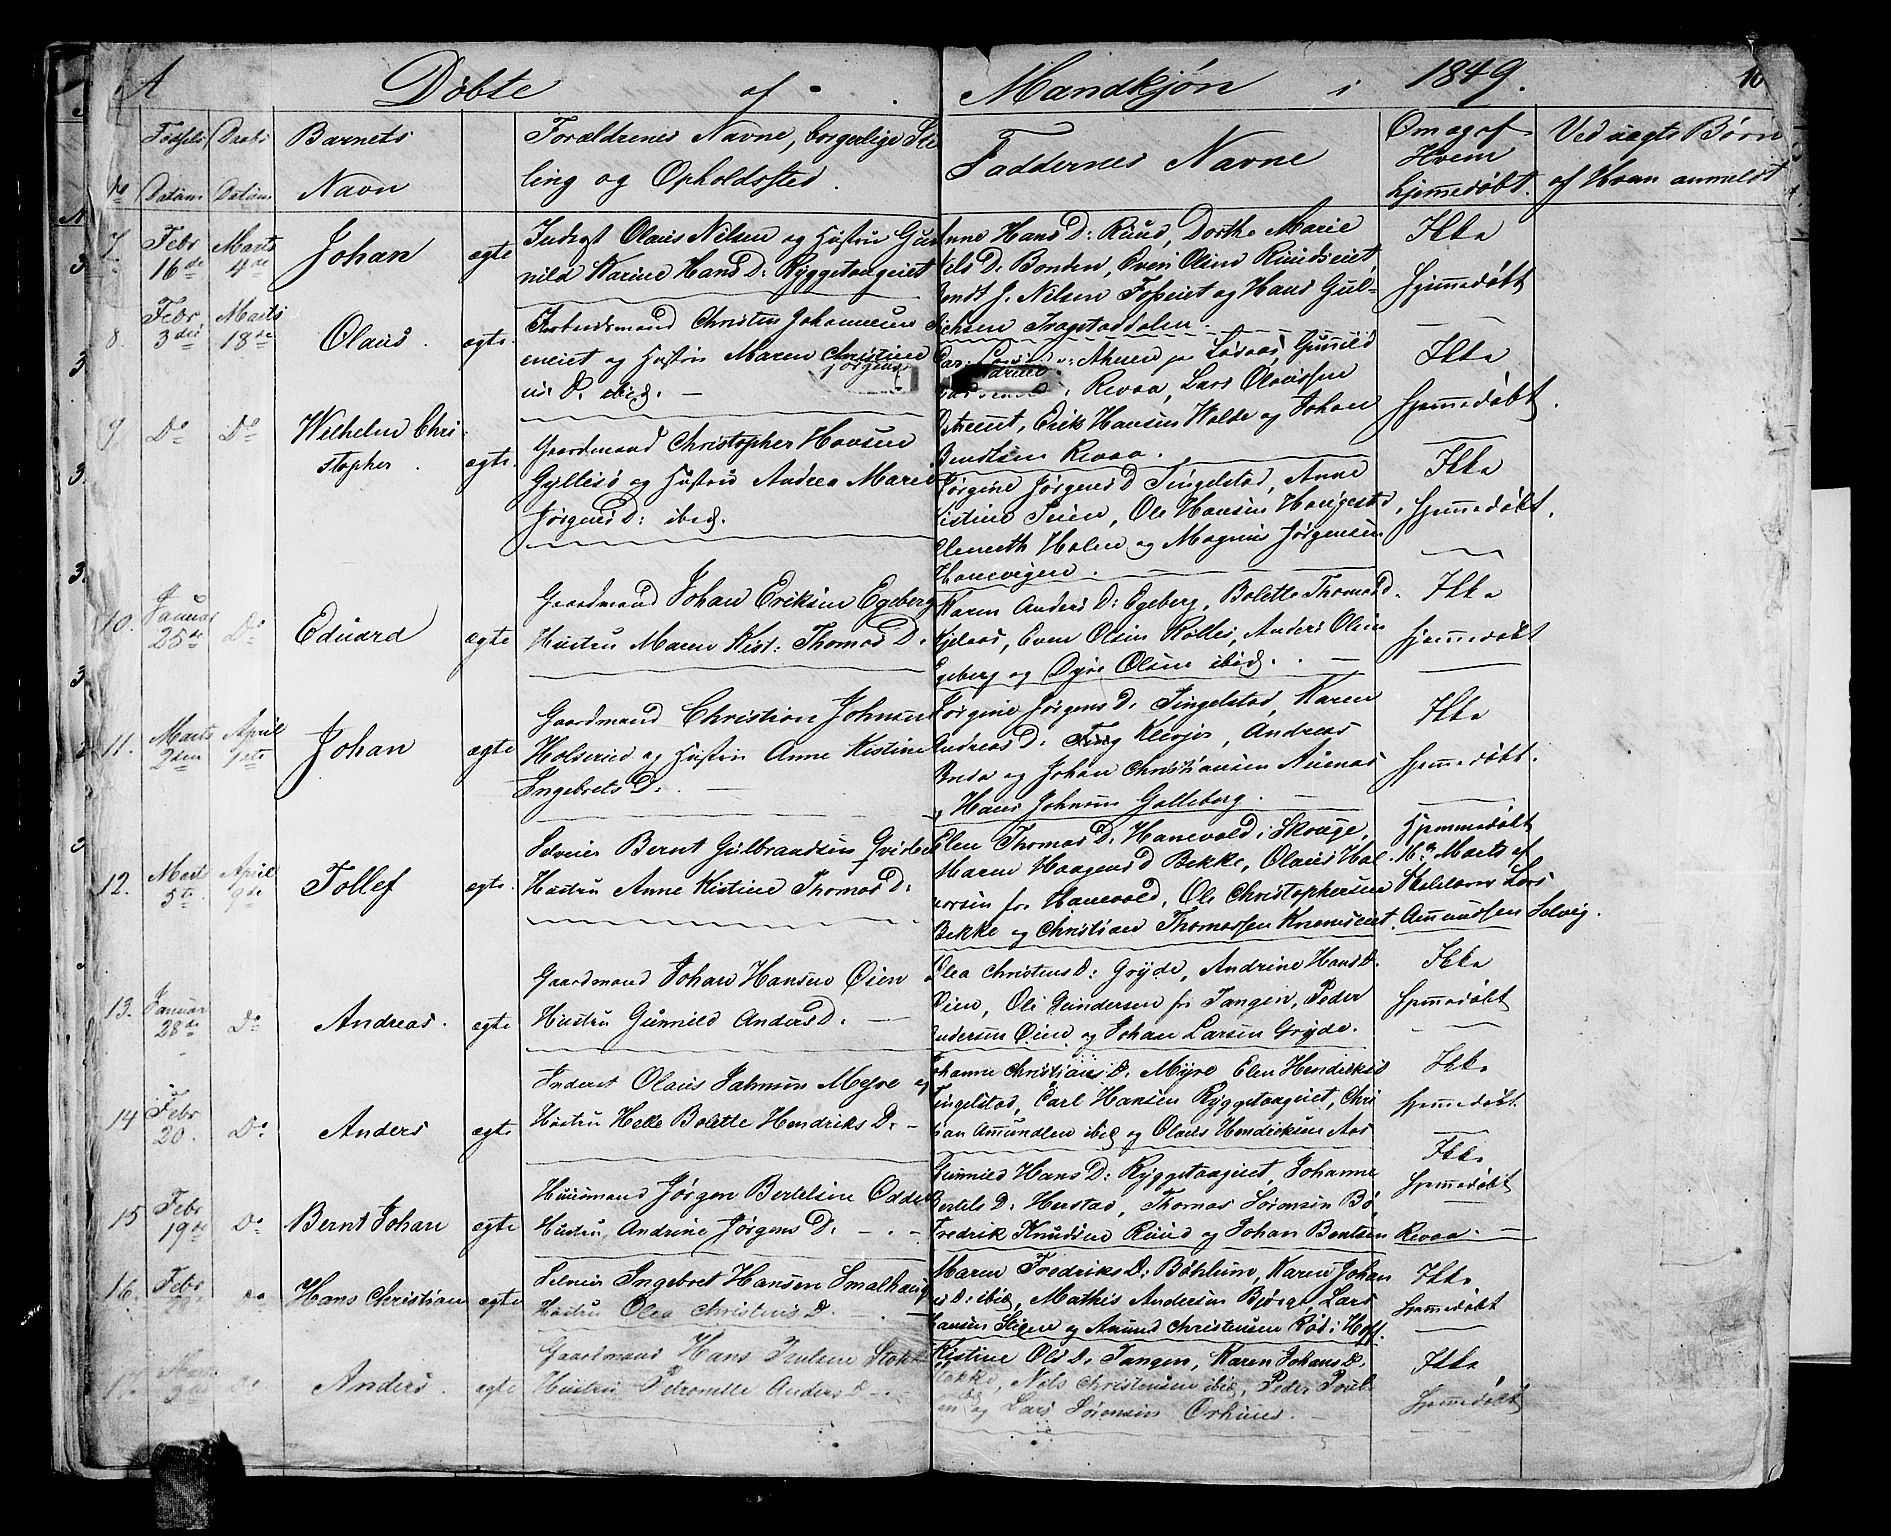 A Döbte af Mandkjön i 1849. 10
Födsels Daabs Barnets Forældrenes Navne, borgerlige Stil Faddernes Navne Om og af Ved uægte Börn
No Datum Datum Navn ling og Opholdssted. Hvem hjemmedöbt. af Hvem anmeldt
7. Febr 16de Marts 4de Johan ægte
Inderst Olaus Nilsen og Hustru Gun
nild Karine Hans D: Ryggetangeiet
Anne Hans D: Ruud, Dorthe Marie
Nils D: Bonden, Even Olsen Ruudseiet
Bendt J. Nilsen Fosseiet og Hans Gul-
Tragstaddalen.
Ikke
hjemmedöbt
8. Febr 3die Marts 18de Olaus. ægte
Christen Johannesen
eneiet og Hustru Maren Christine
Jörgens
D. ibid.
Gunild
Revaa, Lars Olaussen
Erik Hansen Wolde og Johan
Bendtsen Revaa.
Ikke
hjemmedöbt.
9. Do Do Wilhelm Chri-
stopher. ægte.
Gaardmand Christopher Hansen
Gyllisö og Hustru Andrea Marie
Jörgens D: ibid.
Jörgine Jörgens D Tingelstad, Anne
Kistine Teien, Ole Hansen Haugestad,
Clemeth Holen og Magnus Jörgensen
Hanevigen.
Ikke
hjemmedöbt.
10. Januar 25de Do Eduard ægte
Gaardmand Johan Eriksen Egeberg
Hustru Maren Kist: Thomas D.
Karen Anders D: Egeberg, Bolette Thomas D.
Kjelaas, Even Olsen Rölles, Anders Olsen
Egeberg og Dyre Olsen ibid.
Ikke
hjemmedöbt
11. Marts 2den April 1ste Johan ægte
Gaardmand Christian Johnsen
Holseried og Hustru Anne Kistine
Ingebrets D.
Jörgine Jörgens D. Tingelstad, Karen
Andreas D: Klevjer, Andreas
Breda og Johan Christiansen Auenas
og Hans Johnsen Golleberg.
Ikke
hjemmedöbt.
12. Marts 5te April 9de Tollef ægte.
Selveier Bernt Gulbrandsen
Hustru Anne Kistine Thomas D:
Elen Thomas D: Hanevold i Skouge,
Maren Haagens D Bekke, Olaus Hal-
vorsen fr Hanevold, Ole Christophersen
Bekke og Christian Thomassen
Hjemmedöbt
Marts af
Skolelærer Lars
Amundsen Solvig.
13. Januar 28de Do Andreas. ægte
Gaardmand Johan Hansen Öien
Hustru Gunnild Anders D.
Olea Christens D: Gryde, Andrine Hans D.
Öien, Ole Gundersen fr Tangen, Peder
Andersen Öien og Johan Larsen Gryde.
Ikke
hjemmedöbt
14 Febr 20. Do Anders ægte
Inderst Olaus Johnsen Myre og
Hustru Helle Bolette Hendriks D.
Johanne Christians D. Myre Elen Hendriks D
Tingelstad, Carl Hansen Ryggetangeiet, Chri
stian Amundsen ibid og Olaus Hendriksen Aas
Ikke
hjemmedöbt.
15 Febr 19de Do Bernt Johan ægte
Huusmand Jörgen Bertelsen Odde
Hustru Andrine Jörgens D.
Gunnild Hans D: Ryggetangeiet, Johanne
Bertels D: Herstad, Thomas Sörensen Bö,
Fredrik Knudsen Ruud og Johan Bentsen Revaa.
Ikke
hjemmedöbt
16. Febr Do Hans Christian ægte
Selveier Ingebret Hansen Smalhaug
Hustru Olea Christens D.
Maren Fredriks D: Böhlum, Karen Johan
nes D: ibid, Mathis Andersen Bjerge, Lars
Hansen Stigen og Amund Christensen Röd i Hoff.
Ikke
hjemmedöbt
17. Marts 3die Do Anders. ægte
Gaardmand Hans Stokke
Hustru Petronelle Anders D
Kistine Ols D. Tangen, Karen Johans D.
Stokke, Nils Christensen ibid, Peder Poul
sen og Lars Sörensen Orhuus.
Ikke
hjemmedöbt